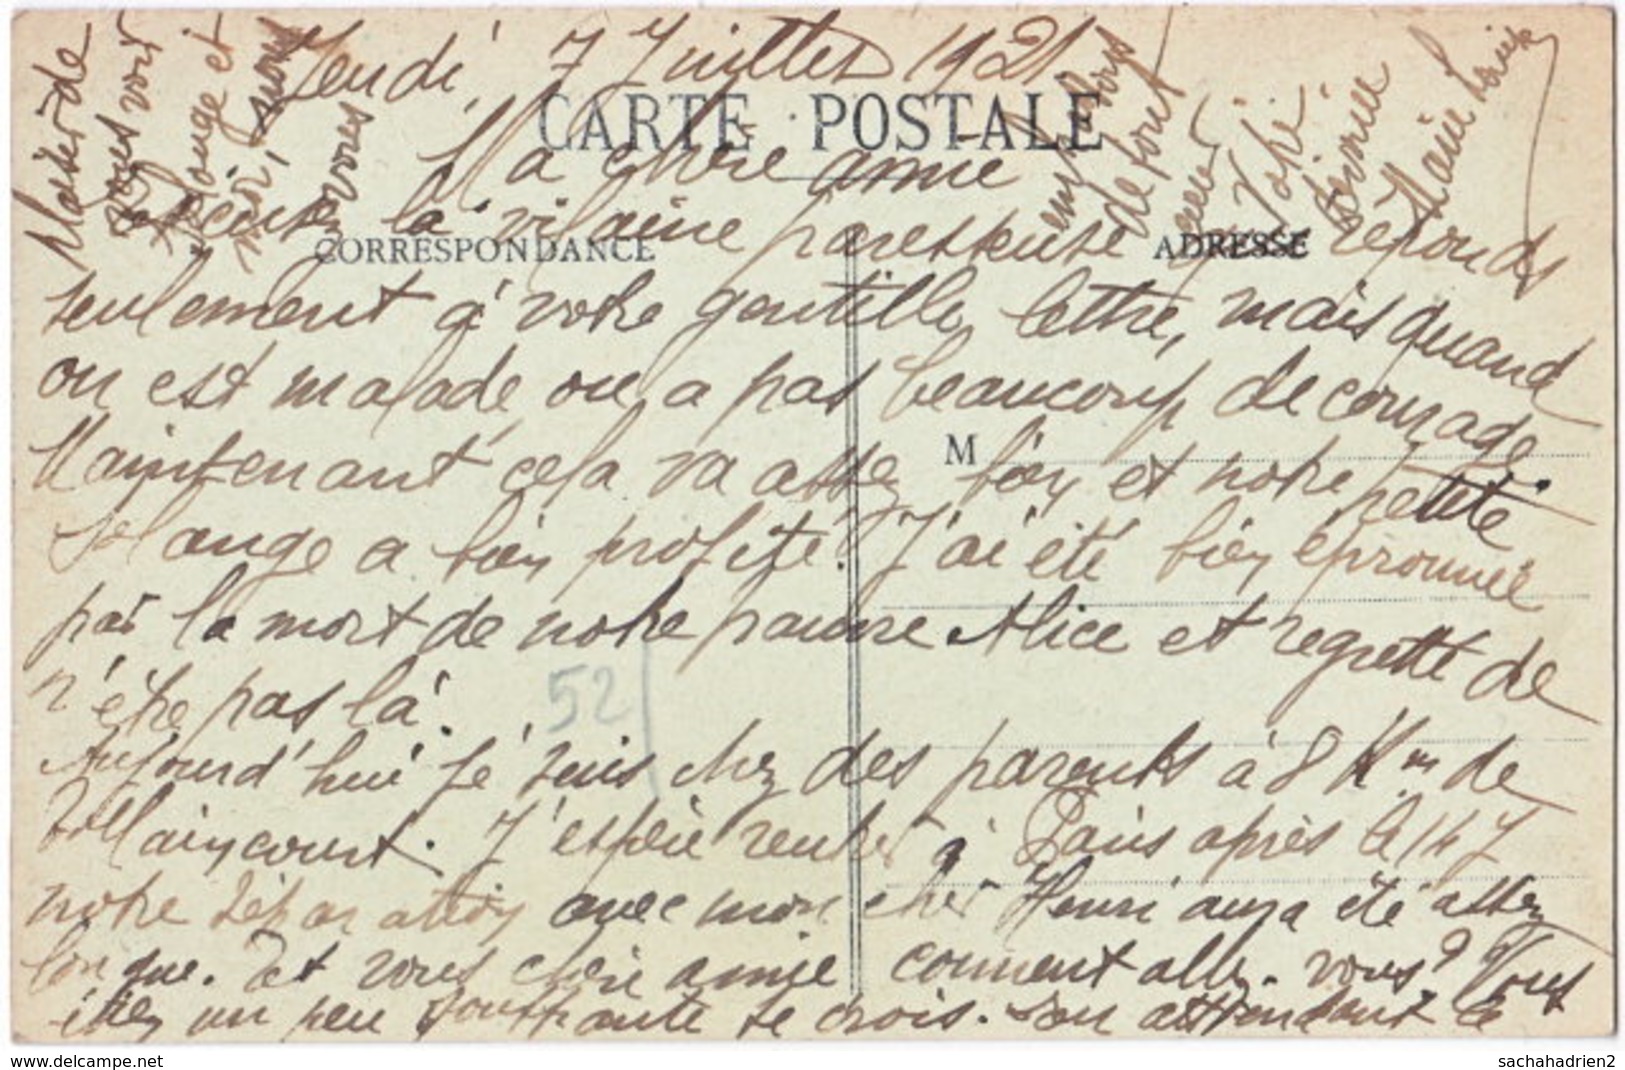 Jeudi, 7 Juillet 1921
CARTE POSTALE
Ma chère amie
excusez la vilaine paresseuse qui réponds
CORRESPONDANCE
ADRESSE
seulement à votre gentille lettre, mais quand
on est malade on a pas beaucoup de courage.
M
Maintenant cela va assez bien et notre petite
Solange a bien profité. J'ai été bien éprouvée
par la mort de notre pauvre Alice et regretté de
n'être pas là.
52
Aujourd'hui je suis chez des parents à 8 Km de
Bollaincourt. J'espère rentrer à Paris après le 14 J
notre séparation avec mon cher Henri aura été assez
longue. Et vous chère amie comment allez-vous? Vous
étiez un peu souffrante je crois. En attendant le
plaisir de
vous voir
Solange et
moi, nous
vous
embrassons
de tout
cœur
Votre
dévouée
Marie Louise
www.delcampe.net
sachahadrien2